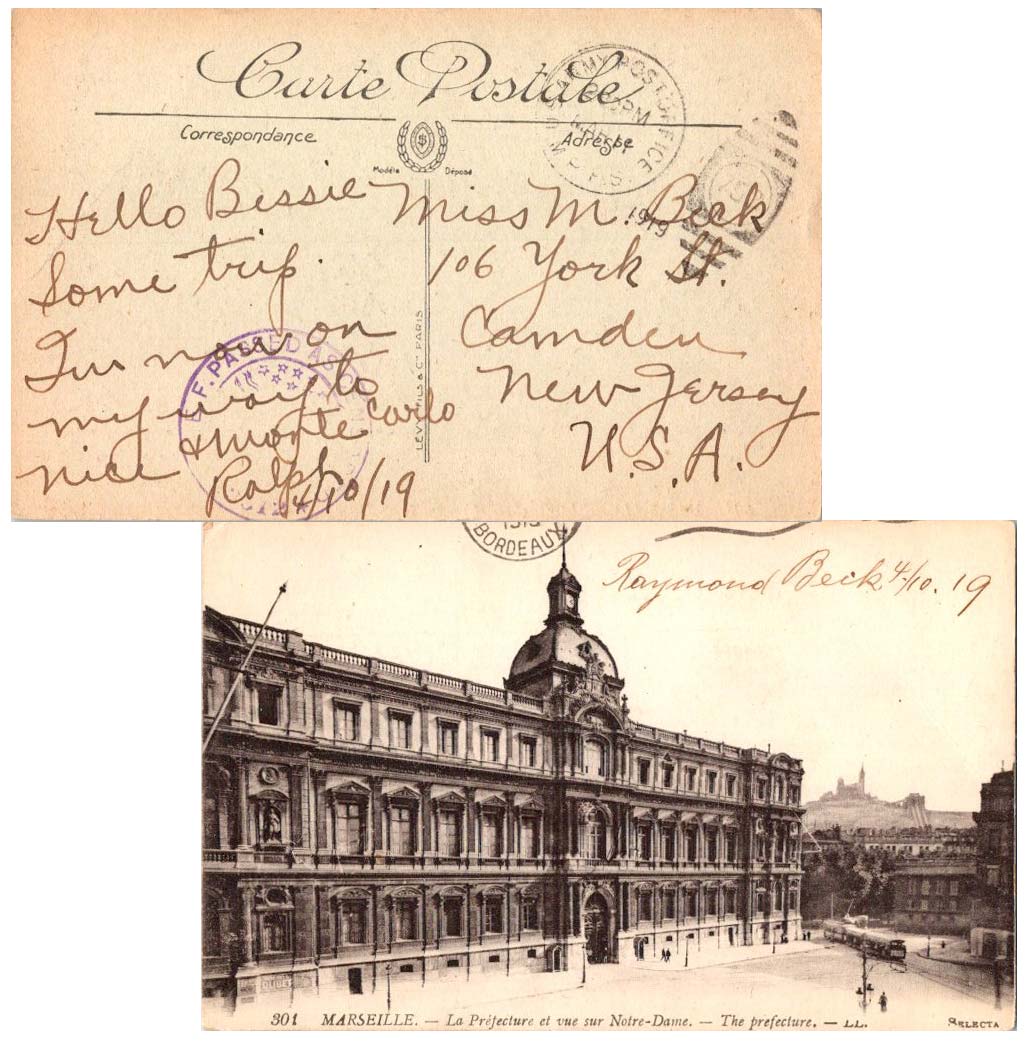 Carte Postale
Correspondance
Adresse
Modèle Déposé
ARMY POST OFFICE
PM
M.P.E.S.
1919
Hello Bessie
Some trip.
I'm now on
my way to
nice & Monte Carlo
Ralph
4/10/19
Miss M. Beck
106 York St.
Camden
New Jersey
U.S.A.
E.F. PASSED AS
LÉVY FILS & Cie PARIS
BORDEAUX
Raymond Beck 4/10.19
301 MARSEILLE. — La Préfecture et vue sur Notre-Dame. — The prefecture. — LL.
SELECTA